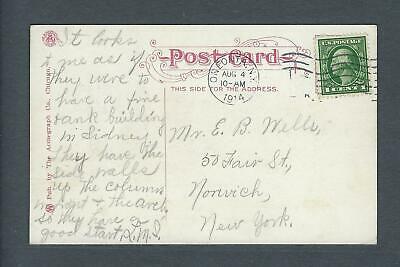 It looks
to me as if
they were to
have a fine
bank building
in Sidney
they have the
side walls
up the columns
in front & the arch.
So they have a
good start, L.M.S.
Post Card
THIS SIDE FOR THE ADDRESS.
AUG 4
10-AM
1914
U.S. POSTAGE
1 CENT 1
Mr. E. B. Wells,
50 Fair St,
Norwich,
New York.
Pub. by The Acmegraph Co., Chicago.